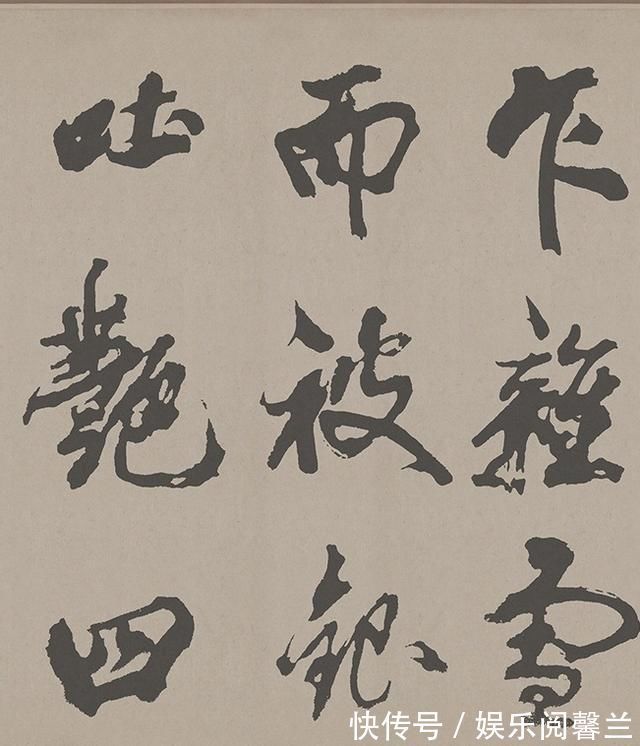 乍雜雪
而被銀
吐艷四
快传号 / 娱乐阅馨兰